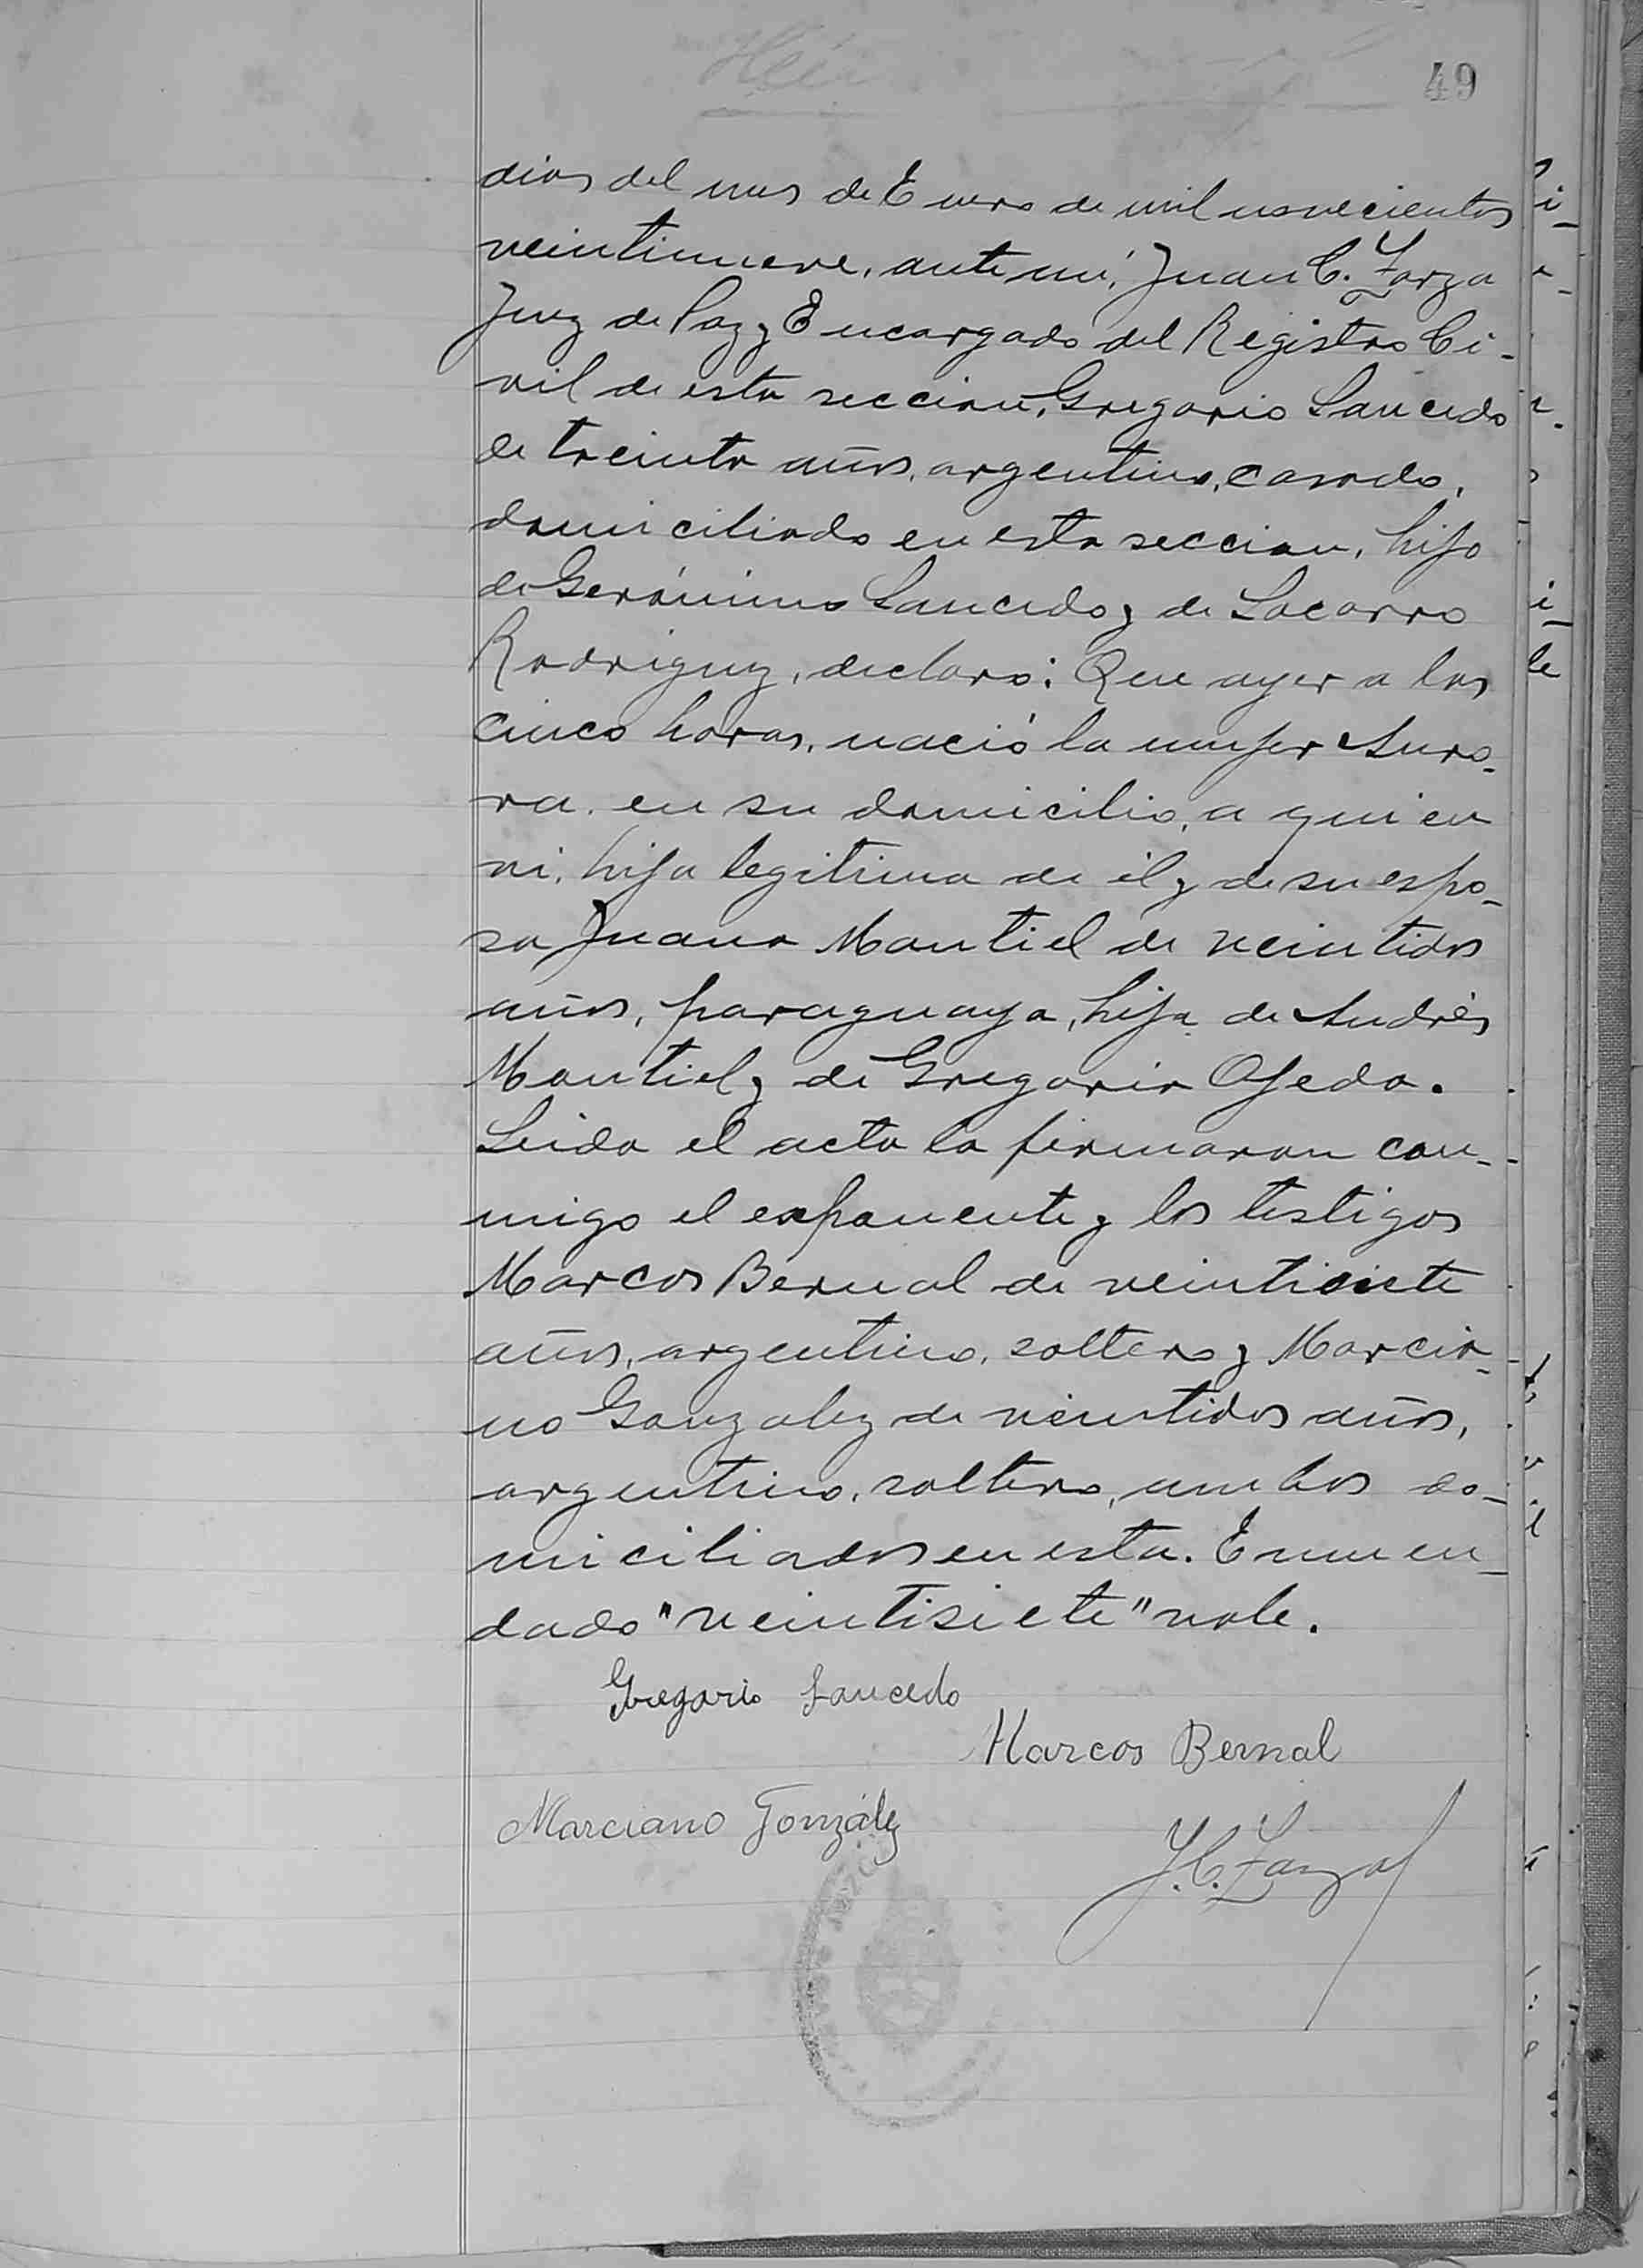 49
dias del mes de Enero de mil novecientos
veintinueve, ante mí, Juan C. Zarza
Juez de Paz y Encargado del Registro Ci-
vil de esta seccion, Gregorio Saucedo
de treinta años, argentino, casado,
domiciliado en esta seccion, hijo
de Gerónimo Saucedo y de Socorro
Rodriguez, declaró: Que ayer a las
cinco horas, nació la mujer Auro-
ra, en su domicilio, a quien
vi, hija legitima de él y de su espo-
sa Juana Montiel de veintidos
años, paraguaya, hija de Andrés
Montiel y de Gregoria Ojeda.
Leida el acta la firmaron con-
migo el exponente y los testigos
Marcos Bernal de veintisiete
años, argentino, soltero y Marcia-
no Gonzalez de veintidos años,
argentino, soltero, ambos do-
miciliados en esta. Enmen-
dado "veintisiete" vale.
Gregorio Saucedo
Marcos Bernal
Marciano González
J. C. Zarza